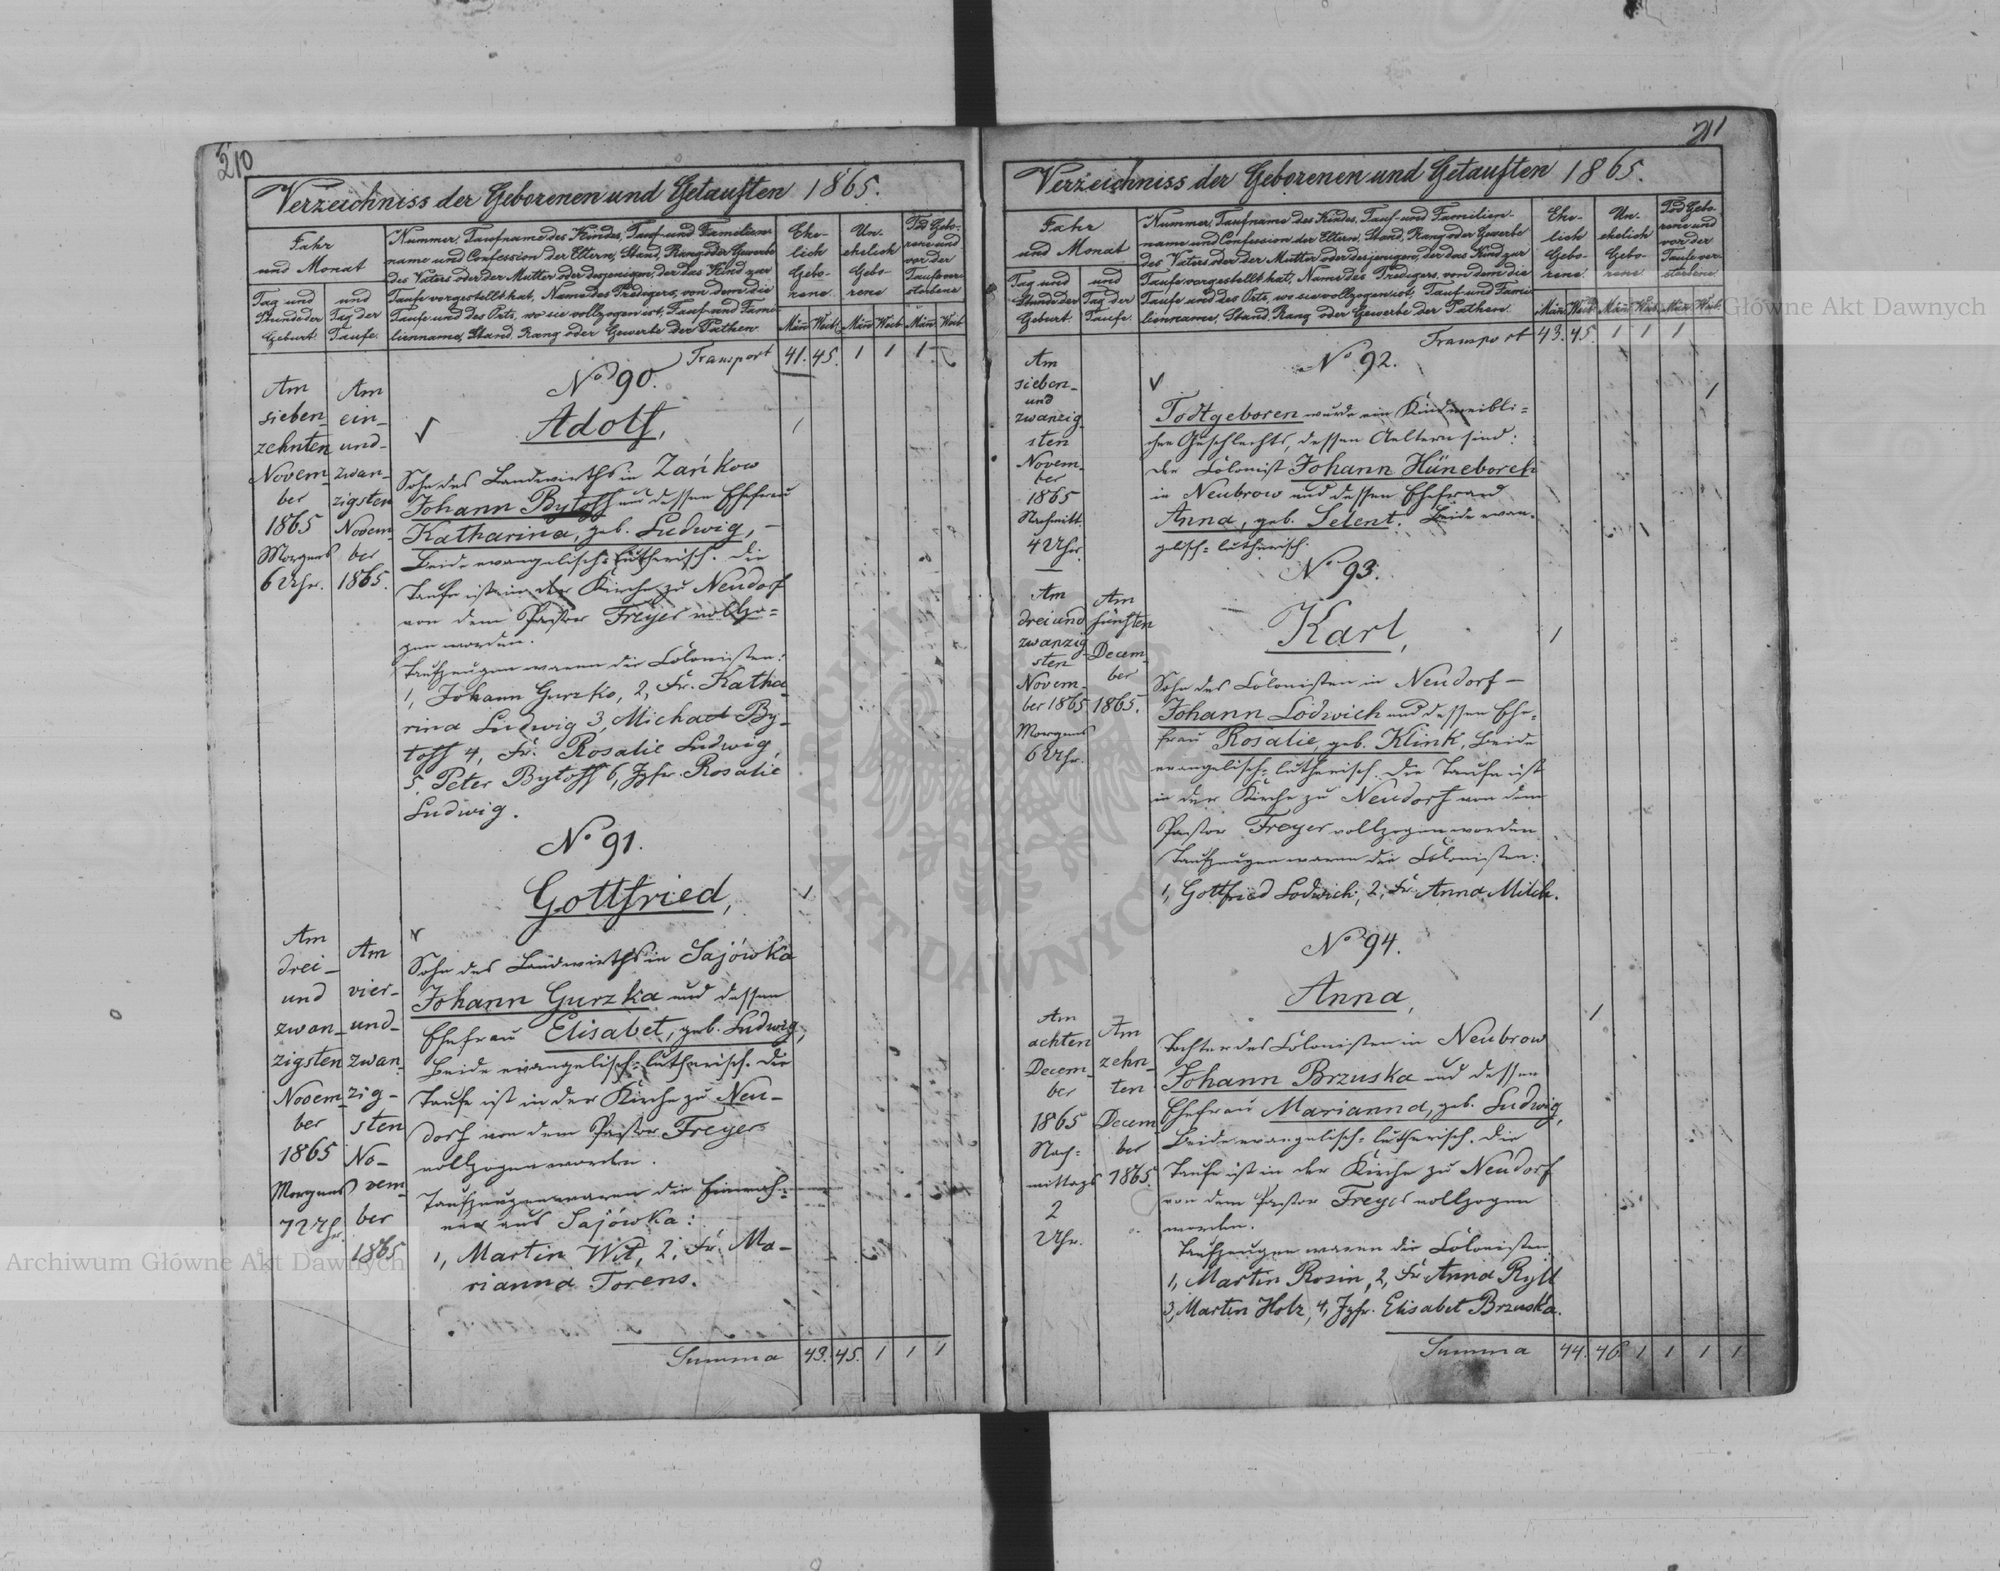 210
Verzeichniss der Geborenen und Getauften 1865.
Jahr
und Monat
Tag und
Stunde der
Geburt.
und
Tag der
Taufe.
Nummer, Taufname des Kindes, Tauf- und Familien-
name und Confession der Eltern, Stand, Rang oder Gewerbe
des Vaters oder der Mutter oder desjenigen, der das Kind zur
Taufe vorgestellt hat, Name des Predigers, von dem die
Taufe und des Orts, wo sie vollzogen ist, Tauf- und Fami-
lienname, Stand, Rang oder Gewerbe der Pathen.
Ehe-
lich
Gebo-
rene
Un-
ehelich
Gebo-
rene
Tod Gebo-
rene und
vor der
Taufe ver-
storbene
Män Weib. Män Weib Män Weib
Transport 41. 45. 1 1 1
Am
sieben-
zehnten
Novem-
ber
1865
Morgens
6 Uhr.
Am
ein-
und-
zwan-
zigsten
Novem
ber
1865.
No 90.
Adolf,
Sohn des Landwirths in Zańkow
Johann Bytoff und dessen Ehefrau
Katharina, geb. Ludwig, –
Beide evangelisch-lutherisch. Die
Taufe ist in der Kirche zu Neudorf
von dem Pastor Freyer vollzo-
gen worden.
Taufzeugen waren die Colonisten:
1, Johann Gurzko, 2, Fr. Katha-
rina Ludwig 3, Michael By-
toff 4, Fr. Rosalie Ludwig,
5, Peter Bytoff 6, Jgfr. Rosalie
Ludwig.
1
No 91.
Gottfried,
1
Am
drei-
und
zwan-
zigsten
Novem-
ber
1865
Morgens
7 Uhr.
Am
vier-
und-
zwan-
zig-
sten
No-
vem-
ber
1865
Sohn des Landwirths in Sajówka
Johann Gurzka und dessen
Ehefrau Elisabet, geb. Ludwig,
Beide evangelisch-lutherisch. Die
Taufe ist in der Kirche zu Neu-
dorf von dem Pastor Freyer
vollzogen worden.
Taufzeugen waren die Einwoh-
ner aus Sajówka:
1, Martin Wit, 2, Fr. Ma-
rianna Torens.
Summa 43. 45. 1 1 1
211
Verzeichniss der Geborenen und Getauften 1865.
Jahr
und Monat
Tag und
Stunde der
Geburt.
und
Tag der
Taufe.
Nummer, Taufname des Kindes, Tauf- und Familien-
name und Confession der Eltern, Stand, Rang oder Gewerbe
des Vaters oder der Mutter oder desjenigen, der das Kind zur
Taufe vorgestellt hat, Name des Predigers, von dem die
Taufe und des Orts, wo sie vollzogen ist, Tauf- und Fami-
lienname, Stand, Rang oder Gewerbe der Pathen.
Ehe-
lich
Gebo-
rene
Un-
ehelich
Gebo-
rene
Tod Gebo-
rene und
vor der
Taufe ver-
storbene
Män Weib Män Weib Män Weib.
Transport 43. 45. 1 1 1
Am
sieben-
und
zwanzig-
sten
Novem-
ber
1865
Nachmitt.
4 Uhr.
No 92.
Todtgeboren wurde ein Kind weibli-
chen Geschlechts, dessen Aeltern sind:
der Colonist Johann Hüneborch
in Neubrow und dessen Ehefrau
Anna, geb. Selent. Beide evan-
gelisch-lutherisch.
1
No 93.
Karl,
1
Am
drei und
zwanzig-
sten
Novem-
ber 1865
Morgens
6 Uhr.
Am
fünften
Decem-
ber
1865.
Sohn des Colonisten in Neudorf –
Johann Lodwich und dessen Ehe-
frau Rosalie, geb. Klink, Beide
evangelisch-lutherisch. Die Taufe ist
in der Kirche zu Neudorf von dem
Pastor Freyer vollzogen worden.
Taufzeugen waren die Colonisten:
1, Gottfried Lodwich, 2, Fr. Anna Milch.
No 94.
Anna,
1
Am
achten
Decem-
ber
1865
Nach-
mittags
2
Uhr.
Am
zehn-
ten
Decem-
ber
1865.
Tochter des Colonisten in Neubrow
Johann Brzuska und dessen
Ehefrau Marianna, geb. Ludwig,
Beide evangelisch-lutherisch. Die
Taufe ist in der Kirche zu Neudorf
von dem Pastor Freyer vollzogen
worden.
Taufzeugen waren die Colonisten
1, Martin Rosin, 2, Fr. Anna Ryll
3, Martin Holz, 4, Jgfr. Elisabet Brzuska.
Summa 44. 46. 1 1 1 1
Główne Akt Dawnych
Archiwum Główne Akt Dawnych
ARCHIWUM
AKT DAWNYCH